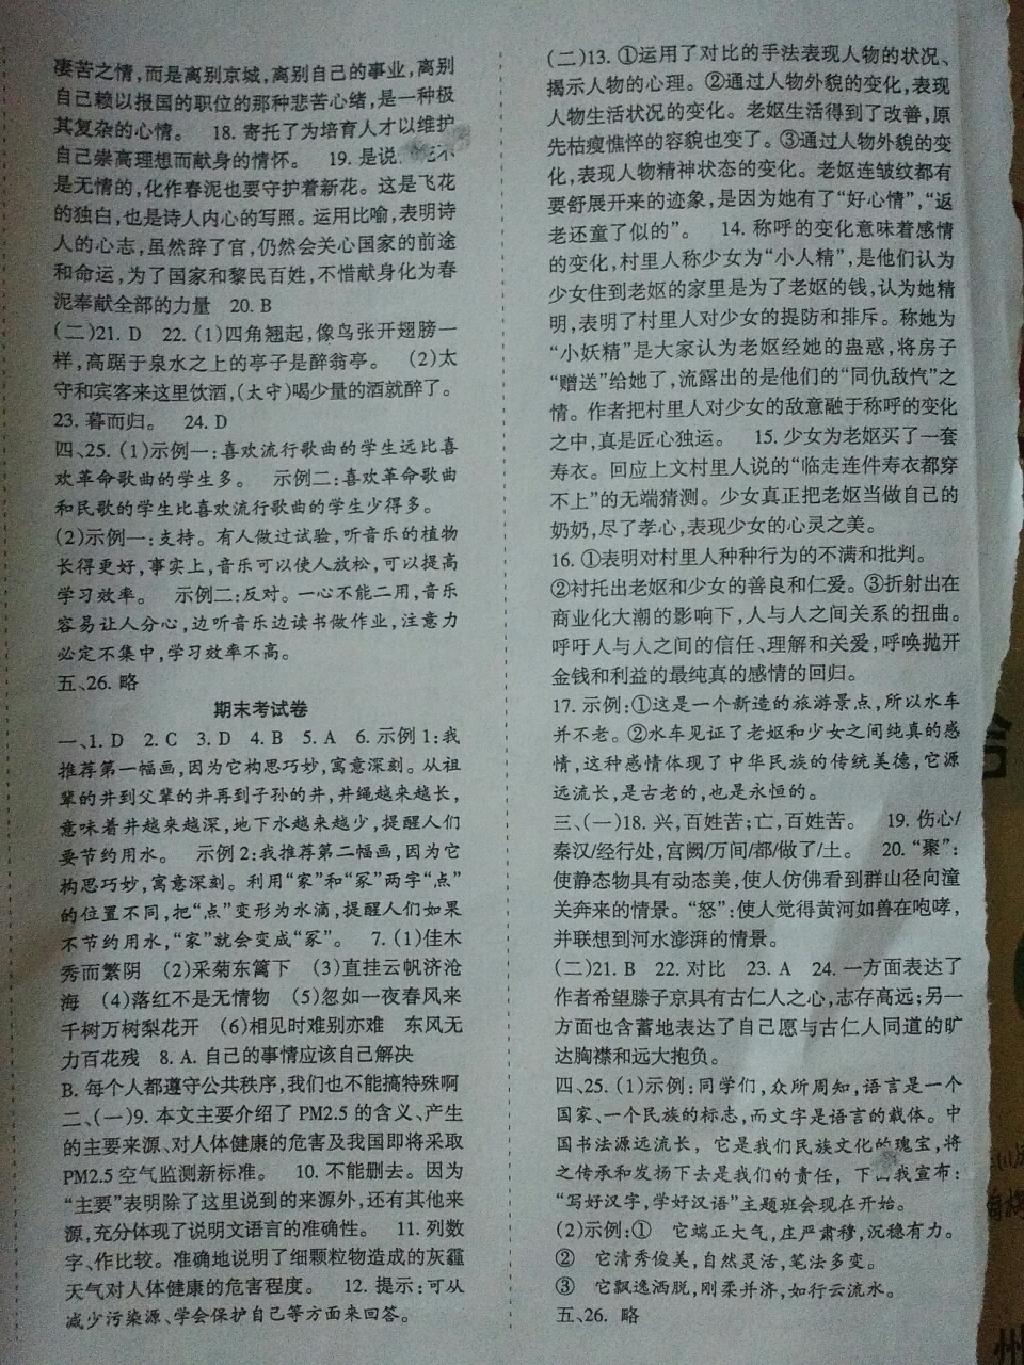 凄苦之情,而是离别京城,离别自己的事业,离别
自己赖以报国的职位的那种悲苦心绪,是一种极
其复杂的心情。 18. 寄托了为培育人才以维护
自己崇高理想而献身的情怀。 19. 是说
是无情的,化作春泥也要守护着新花。这是飞花
的独白,也是诗人内心的写照。运用比喻,表明诗
人的心志,虽然辞了官,仍然会关心国家的前途
和命运,为了国家和黎民百姓,不惜献身化为春
泥奉献全部的力量 20. B
(二)21. D 22. (1)四角翘起,像鸟张开翅膀一
样,高踞于泉水之上的亭子是醉翁亭。 (2)太
守和宾客来这里饮酒,(太守)喝少量的酒就醉了。
23. 暮而归。 24. D
四、25. (1)示例一:喜欢流行歌曲的学生远比喜
欢革命歌曲的学生多。 示例二:喜欢革命歌曲
和民歌的学生比喜欢流行歌曲的学生少得多。
(2)示例一:支持。有人做过试验,听音乐的植物
长得更好,事实上,音乐可以使人放松,可以提高
学习效率。 示例二:反对。一心不能二用,音乐
容易让人分心,边听音乐边读书做作业,注意力
必定不集中,学习效率不高。
五、26. 略
期末考试卷
一、1. D 2. C 3. D 4. B 5. A 6. 示例1:我
推荐第一幅画,因为它构思巧妙,寓意深刻。从祖
辈的井到父辈的井再到子孙的井,井绳越来越长,
意味着井越来越深,地下水越来越少,提醒人们
要节约用水。 示例2:我推荐第二幅画,因为它
构思巧妙,寓意深刻。利用“家”和“冢”两字“点”
的位置不同,把“点”变形为水滴,提醒人们如果
不节约用水,“家”就会变成“冢”。 7. (1)佳木
秀而繁阴 (2)采菊东篱下 (3)直挂云帆济沧
海 (4)落红不是无情物 (5)忽如一夜春风来
千树万树梨花开 (6)相见时难别亦难 东风无
力百花残 8. A. 自己的事情应该自己解决
B. 每个人都遵守公共秩序,我们也不能搞特殊啊
二、(一)9. 本文主要介绍了 PM2.5 的含义、产生
的主要来源、对人体健康的危害及我国即将采取
PM2.5 空气监测新标准。 10. 不能删去。因为
“主要”表明除了这里说到的来源外,还有其他来
源,充分体现了说明文语言的准确性。 11. 列数
字、作比较。准确地说明了细颗粒物造成的灰霾
天气对人体健康的危害程度。 12. 提示:可从
减少污染源、学会保护自己等方面来回答。
(二)13. ①运用了对比的手法表现人物的状况、
揭示人物的心理。②通过人物外貌的变化,表现
人物生活状况的变化。老妪生活得到了改善,原
先枯瘦憔悴的容貌也变了。③通过人物外貌的变
化,表现人物精神状态的变化。老妪连皱纹都有
要舒展开来的迹象,是因为她有了“好心情”,“返
老还童了似的”。 14. 称呼的变化意味着感情
的变化,村里人称少女为“小人精”,是他们认为
少女住到老妪的家里是为了老妪的钱,认为她精
明,表明了村里人对少女的提防和排斥。称她为
“小妖精”是大家认为老妪经她的蛊惑,将房子
“赠送”给她了,流露出的是他们的“同仇敌忾”之
情。作者把村里人对少女的敌意融于称呼的变化
之中,真是匠心独运。 15. 少女为老妪买了一套
寿衣。回应上文村里人说的“临走连件寿衣都穿
不上”的无端猜测。少女真正把老妪当做自己的
奶奶,尽了孝心,表现少女的心灵之美。
16. ①表明对村里人种种行为的不满和批判。
②衬托出老妪和少女的善良和仁爱。③折射出在
商业化大潮的影响下,人与人之间关系的扭曲。
呼吁人与人之间的信任、理解和关爱,呼唤抛开
金钱和利益的最纯真的感情的回归。
17. 示例:①这是一个新造的旅游景点,所以水车
并不老。②水车见证了老妪和少女之间纯真的感
情,这种感情体现了中华民族的传统美德,它源
远流长,是古老的,也是永恒的。
三、(一)18. 兴,百姓苦;亡,百姓苦。 19. 伤心/
秦汉/经行处,宫阙/万间/都/做了/土。 20. “聚”:
使静态物具有动态美,使人仿佛看到群山径向潼
关奔来的情景。“怒”:使人觉得黄河如兽在咆哮,
并联想到河水澎湃的情景。
(二)21. B 22. 对比 23. A 24. 一方面表达了
作者希望滕子京具有古仁人之心,志存高远;另一
方面也含蓄地表达了自己愿与古仁人同道的旷
达胸襟和远大抱负。
四、25. (1)示例:同学们,众所周知,语言是一个
国家、一个民族的标志,而文字是语言的载体。中
国书法源远流长,它是我们民族文化的瑰宝,将
之传承和发扬下去是我们的责任,下 我宣布:
“写好汉字,学好汉语”主题班会现在开始。
(2)示例:① 它端正大气,庄严肃穆,沉稳有力。
② 它清秀俊美,自然灵活,笔法多变。
③ 它飘逸洒脱,刚柔并济,如行云流水。
五、26. 略